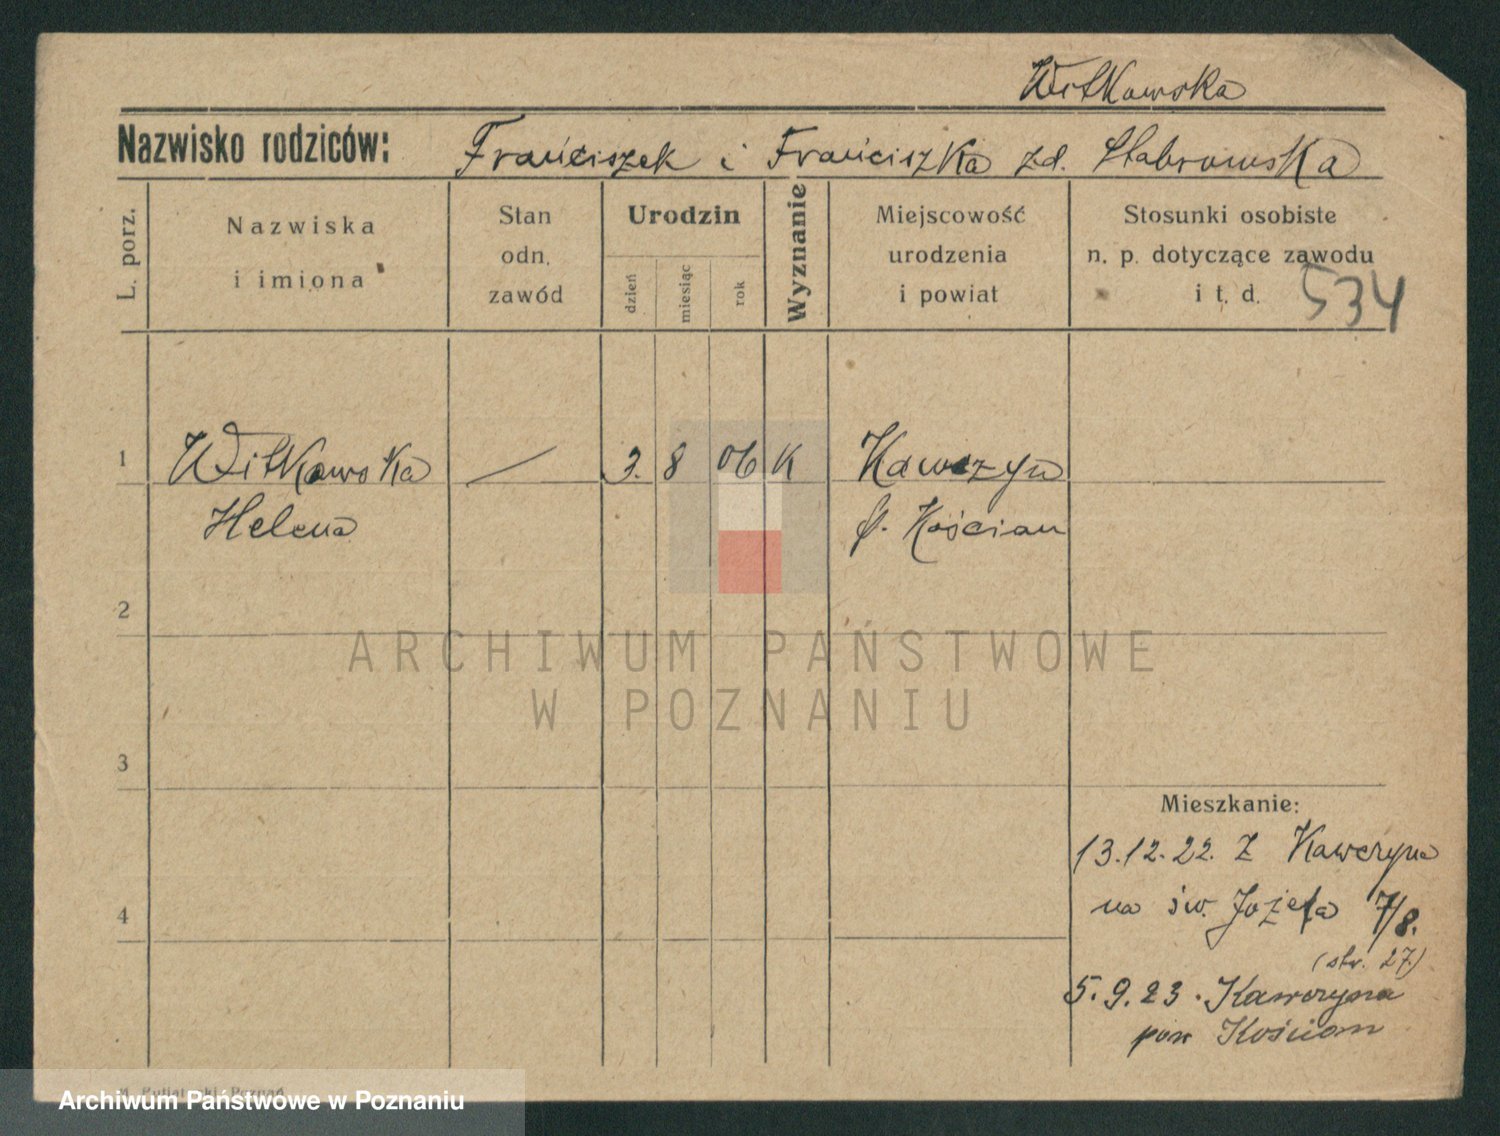 Witkowska
Nazwisko rodziców: Franciszek i Franciszka zd. Stabrowska
L. porz.
Nazwiska
i imiona
Stan
odn.
zawód
Urodzin
dzień
miesiąc
rok
Wyznanie
Miejscowość
urodzenia
i powiat
Stosunki osobiste
n. p. dotyczące zawodu
i t. d.
534
1 Witkowska — 3. 8 06 K Kawczyn
Helena p. Kościan
2
ARCHIWUM PAŃSTWOWE
W POZNANIU
3
Mieszkanie:
13.12.22. z Kawczyna
4 na św. Józefa 7/8.
(str. 27)
5.9.23. Kawczyna
pow Kościan
Poznań
Archiwum Państwowe w Poznaniu